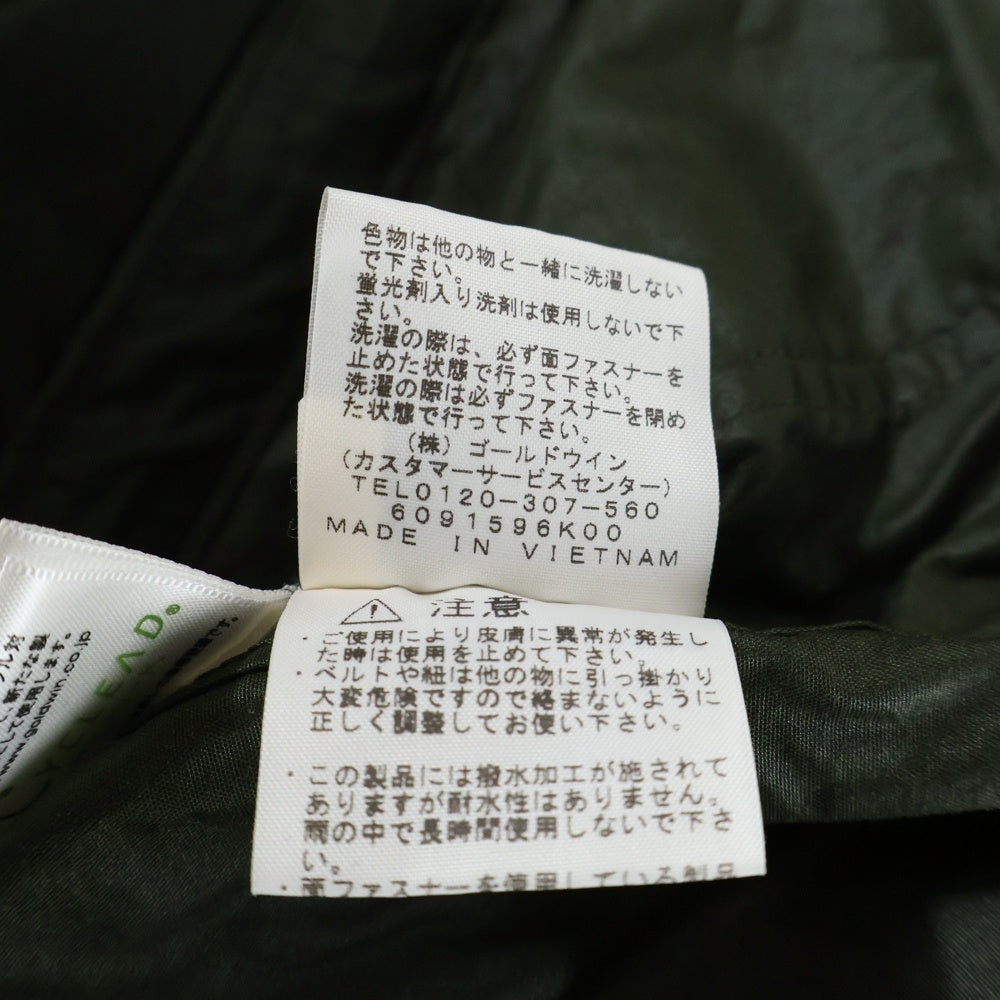 色物は他の物と一緒に洗濯しない
で下さい。
蛍光剤入り洗剤は使用しないで下
さい。
洗濯の際は、必ず面ファスナーを
止めた状態で行って下さい。
洗濯の際は必ずファスナーを閉め
た状態で行って下さい。
(株)ゴールドウイン
(カスタマーサービスセンター)
TEL0120-307-560
6091596K00
MADE IN VIETNAM
⚠ 注意
・ご使用により皮膚に異常が発生し
た時は使用を止めて下さい。
・ベルトや紐は他の物に引っ掛かり
大変危険ですので絡まないように
正しく調整してお使い下さい。
・この製品には撥水加工が施されて
ありますが耐水性はありません。
雨の中で長時間使用しないで下さ
い。
・面ファスナーを使用している製品
YCLEAD®
して使用します。
www.goldwin.co.jp